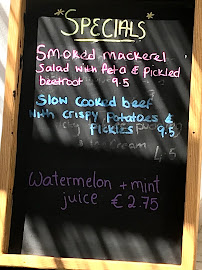 *SPECIALS*
Smoked mackerel
Salad with feta & pickled
beetroot 9.5
Slow cooked beef
with crispy potatoes &
pickles 9.5
Watermelon + mint
juice € 2.75